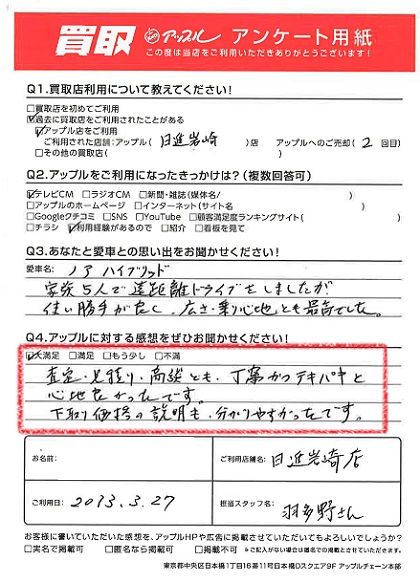 買取 アップル アンケート用紙
この度は当店をご利用いただきありがとうございます！
Q1.買取店利用について教えてください！
□買取店を初めてご利用
☑過去に買取店をご利用されたことがある
☑アップル店をご利用
ご利用された店舗：アップル（ 日進岩崎 ）店 アップルへのご売却（ 2 回目）
□その他の買取店（ ）
Q2.アップルをご利用になったきっかけは？（複数回答可）
☑テレビCM □ラジオCM □新聞・雑誌（媒体名/ ）
□アップルのホームページ □インターネット（サイト名 ）
□Googleクチコミ □SNS □YouTube □顧客満足度ランキングサイト（ ）
□チラシ ☑利用経験があるので □紹介 □看板を見て
Q3.あなたと愛車との思い出をお聞かせください！
愛車名： ノア ハイブリッド
家族5人で遠距離ドライブをしましたが
使い勝手がよく、広さ・乗り心地とも最高でした。
Q4.アップルに対する感想をぜひお聞かせください！
☑大満足 □満足 □もう少し □不満
査定・見積り・商談とも、丁寧かつテキパキと
心地よかったです。
下取り価格の説明も、分かりやすかったです。
お名前：
ご利用店舗名： 日進岩崎店
ご利用日： 2013.3.27
担当スタッフ名： 羽多野さん
お客様に書いていただいた感想を、アップルHPや広告に掲載させていただいてもよろしいでしょうか？
□実名で掲載可 □匿名なら掲載可 □掲載不可 ※ご記入がない場合は匿名での掲載とさせていただきます。
東京都中央区日本橋1丁目16番11号日本橋Dスクエア9F アップルチェーン本部